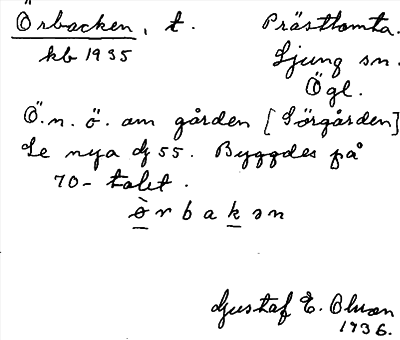 Örbacken, t. Prästtomta.
kb 1935 Ljung sn.
Ögl.
Ö.n.ö. om gården [Sörgården]
Se nya dj 55. Byggdes på
70-talet.
ö̀rbakən
Gustaf E. Olsson
1936.